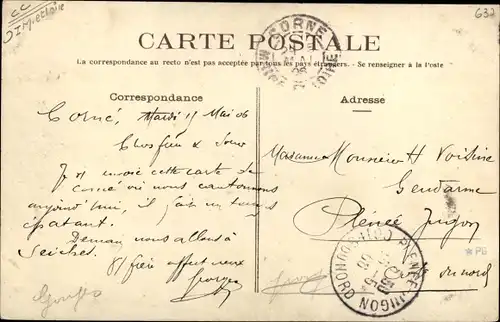 CC
632
CARTE POSTALE
La correspondance au recto n'est pas acceptée par tous les pays étrangers. - Se renseigner à la Poste
CORNÉ
MAINE
LOIRE
Correspondance
Corné, Mardi 15 Mai 06
Cher frère & Sœur
Je envoie cette carte de
Corné où nous cantonnons
aujourd'hui, il fait un temps
épatant.
Demain nous allons à
Seiches.
frère affectueux
Georges
Georges
Adresse
Monsieur H Voisine
Gendarme
Plénée Jugon
Côte du nord
PLÉNÉE-JUGON
CÔTES DU NORD
*PE